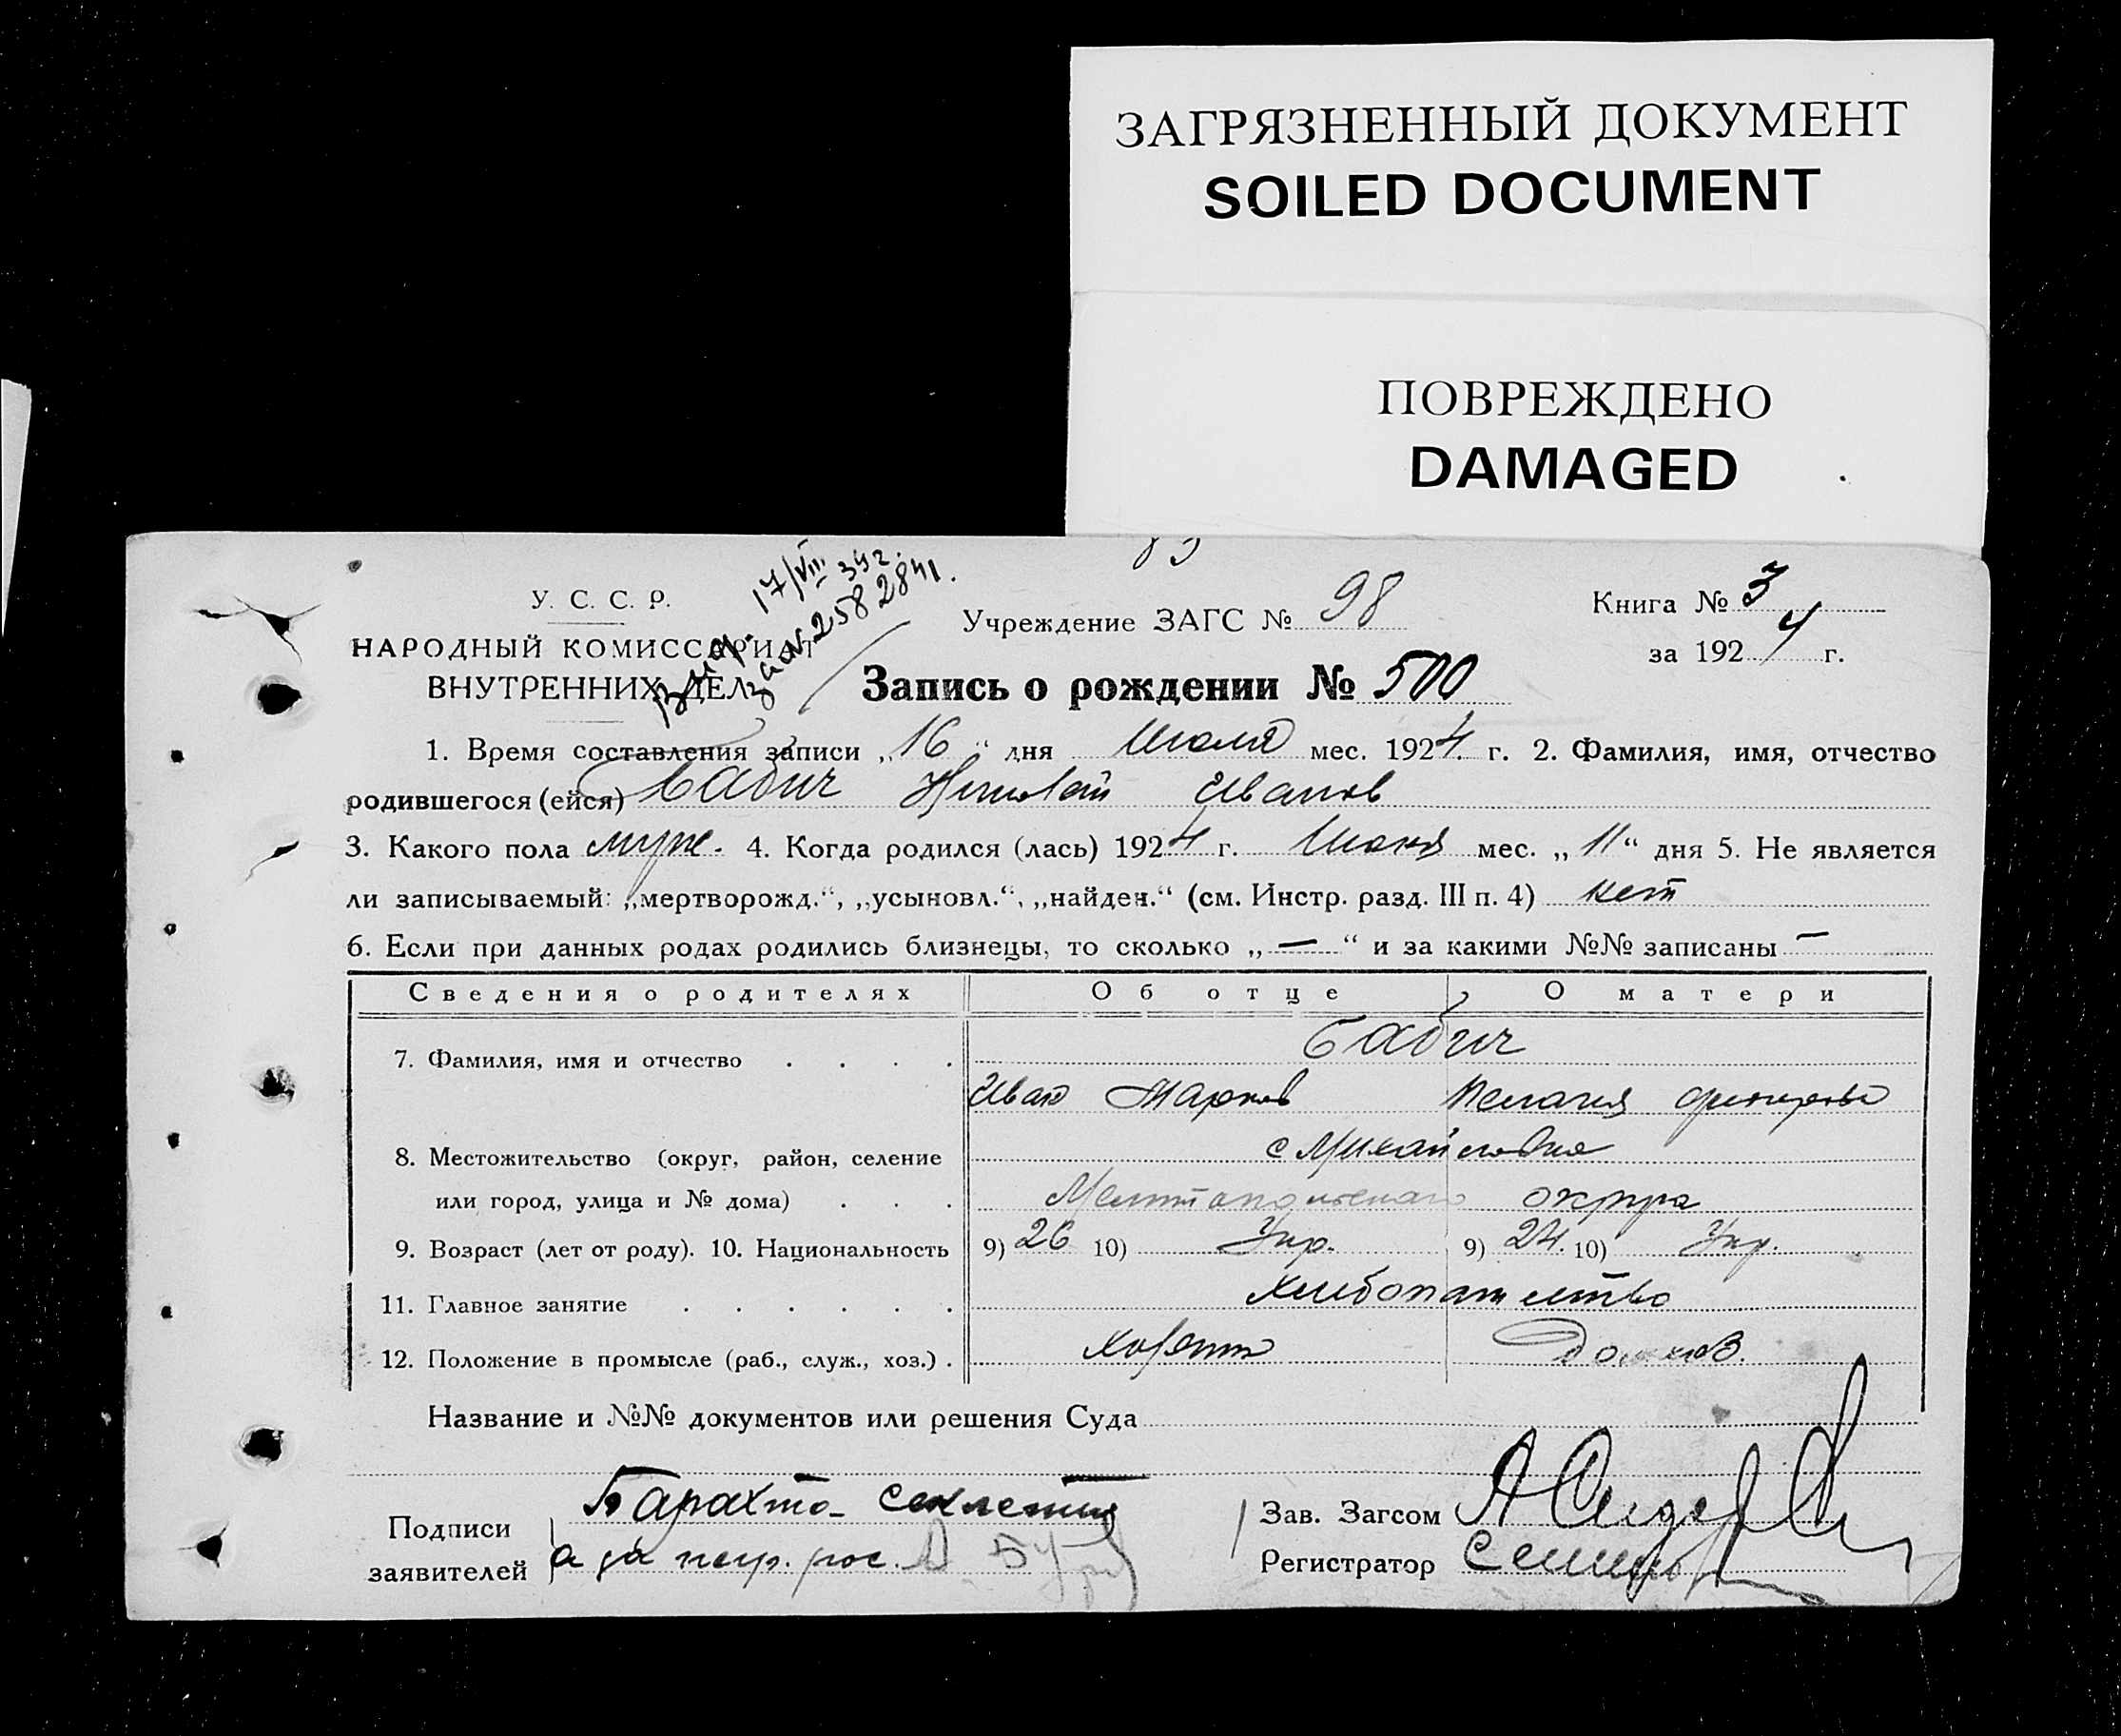 ЗАГРЯЗНЕННЫЙ ДОКУМЕНТ
SOILED DOCUMENT
ПОВРЕЖДЕНО
DAMAGED
У. С. С. Р.
НАРОДНЫЙ КОМИССАРИАТ
ВНУТРЕННИХ ДЕЛ
17/VIII 39г.
2582841.
Учреждение ЗАГС № 98
Книга № 3
за 1924 г.
Запись о рождении № 500
1. Время составления записи „16“ дня Июля мес. 1924 г. 2. Фамилия, имя, отчество
родившегося (ейся) Бабич Николай Иванов
3. Какого пола муж. 4. Когда родился (лась) 1924 г. мес. „11“ дня 5. Не является
ли записываемый: „мертворожд.“, „усыновл.“, „найден.“ (см. Инстр. разд. III п. 4) нет
6. Если при данных родах родились близнецы, то сколько „—“ и за какими №№ записаны —
Сведения о родителях Об отце О матери
7. Фамилия, имя и отчество . . . . Бабич
Иван Марков Пелагия
8. Местожительство (округ, район, селение с Михайловка
или город, улица и № дома) . . . Мелитопольскаго округа
9. Возраст (лет от роду). 10. Национальность 9) 26 10) Укр. 9) 24. 10) Укр.
11. Главное занятие . . . . . . хлебопашество
12. Положение в промысле (раб., служ., хоз.) .
Название и №№ документов или решения Суда
Подписи
заявителей
а за негр. рос.
Зав. Загсом
Регистратор